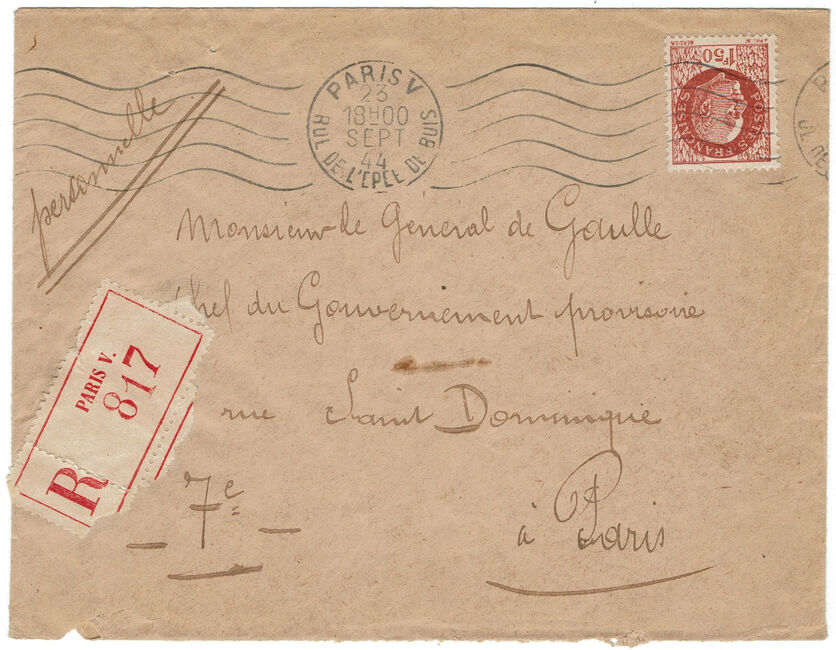 PARIS V
23
18H00
SEPT
44
RUE DE L'EPÉE DE BOIS
1F50
POSTES FRANÇAISES
personnelle
Monsieur le Général de Gaulle
hef du Gouvernement provisoire
rue Saint Dominique
_ 7e _
à Paris
PARIS V.
817
R